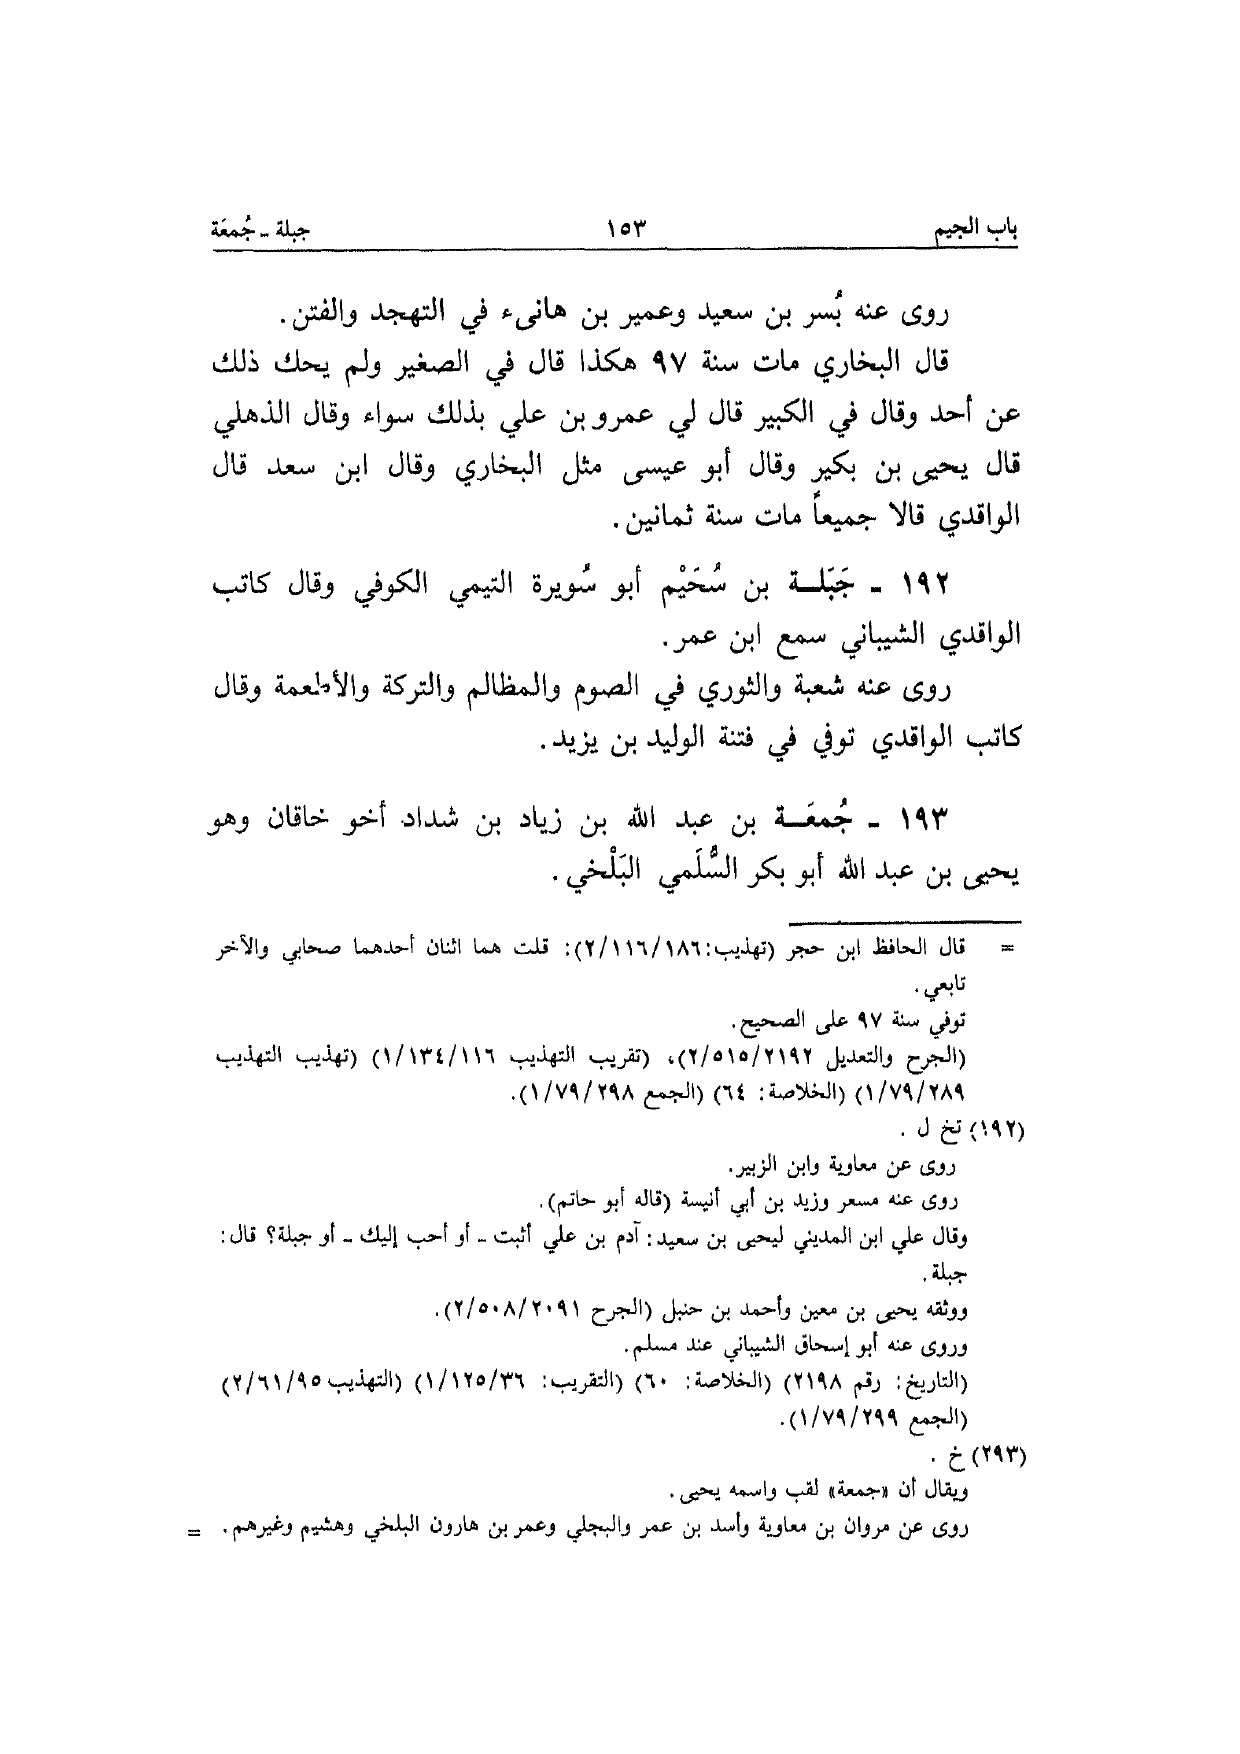 باب الجيم ١٥٣ جبلة ـ جُمعَة
روى عنه بُسر بن سعيد وعمير بن هانىء في التهجد والفتن.
قال البخاري مات سنة ٩٧ هكذا قال في الصغير ولم يحك ذلك
عن أحد وقال في الكبير قال لي عمرو بن علي بذلك سواء وقال الذهلي
قال يحيى بن بكير وقال أبو عيسى مثل البخاري وقال ابن سعد قال
الواقدي قالا جميعاً مات سنة ثمانين.
١٩٢ ـ جَبَلــة بن سُحَيْم أبو سُويرة التيمي الكوفي وقال كاتب
الواقدي الشيباني سمع ابن عمر.
روى عنه شعبة والثوري في الصوم والمظالم والتركة والأطعمة وقال
كاتب الواقدي توفي في فتنة الوليد بن يزيد.
١٩٣ ـ جُمعَــة بن عبد الله بن زياد بن شداد أخو خاقان وهو
يحيى بن عبد الله أبو بكر السُّلَمي البَلْخي.
= قال الحافظ ابن حجر (تهذيب: ٢/١١٦/١٨٦): قلت هما اثنان أحدهما صحابي والآخر
تابعي.
توفي سنة ٩٧ على الصحيح.
(الجرح والتعديل ٢/٥١٥/٢١٩٢)، (تقريب التهذيب ١/١٣٤/١١٦) (تهذيب التهذيب
١/٧٩/٢٨٩) (الخلاصة: ٦٤) (الجمع ١/٧٩/٢٩٨).
(١٩٢) تخ ل .
روى عن معاوية وابن الزبير.
روى عنه مسعر وزيد بن أبي أنيسة (قاله أبو حاتم).
وقال علي ابن المديني ليحيى بن سعيد: آدم بن علي أثبت ـ أو أحب إليك ـ أو جبلة؟ قال:
جبلة.
ووثقه يحيى بن معين وأحمد بن حنبل (الجرح ٢/٥٠٨/٢٠٩١).
وروى عنه أبو إسحاق الشيباني عند مسلم.
(التاريخ: رقم ٢١٩٨) (الخلاصة: ٦٠) (التقريب: ١/١٢٥/٣٦) (التهذيب ٢/٦١/٩٥)
(الجمع ١/٧٩/٢٩٩).
(٢٩٣) خ .
ويقال أن «جمعة» لقب واسمه يحيى.
روى عن مروان بن معاوية وأسد بن عمر والبجلي وعمر بن هارون البلخي وهشيم وغيرهم. =